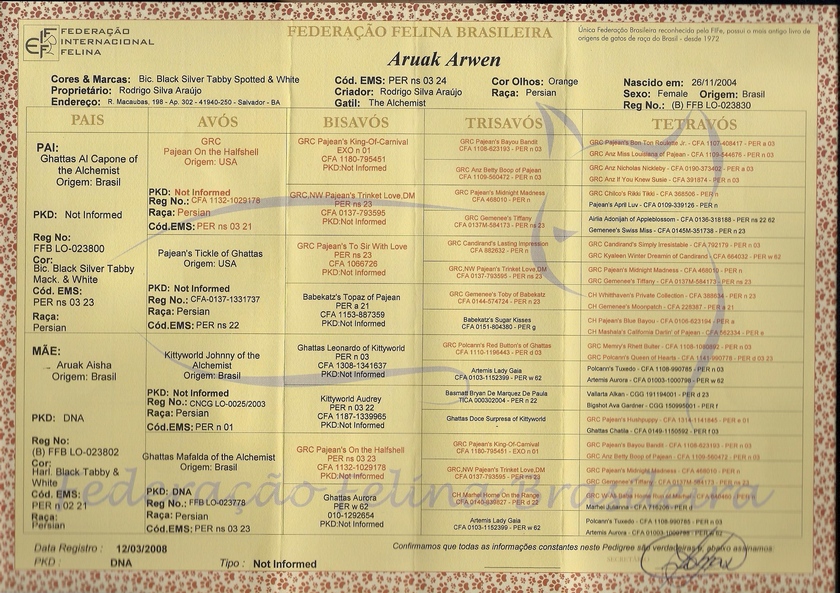 FEDERAÇÃO
INTERNACIONAL
FELINA
FEDERAÇÃO FELINA BRASILEIRA
Única Federação Brasileira reconhecida pela Fife, possui o mais antigo livro de
origens de gatos de raça do Brasil - desde 1972
Aruak Arwen
Cores & Marcas: Bic. Black Silver Tabby Spotted & White
Proprietário: Rodrigo Silva Araújo
Endereço: R. Macaubas, 198 - Ap. 302 - 41940-250 - Salvador - BA
Cód. EMS: PER ns 03 24
Criador: Rodrigo Silva Araújo
Gatil: The Alchemist
Cor Olhos: Orange
Raça: Persian
Nascido em: 26/11/2004
Sexo: Female Origem: Brasil
Reg No.: (B) FFB LO-023830
PAIS
AVÓS
BISAVÓS
TRISAVÓS
TETRAVÓS
PAI:
Ghattas Al Capone of
the Alchemist
Origem: Brasil
PKD: Not Informed
Reg No:
FFB LO-023800
Cor:
Bic. Black Silver Tabby
Mack. & White
Cód. EMS:
PER ns 03 23
Raça:
Persian
MÃE:
Aruak Aisha
Origem: Brasil
PKD: DNA
Reg No:
(B) FFB LO-023802
Cor:
Harl. Black Tabby &
White
Cód. EMS:
PER n 02 21
Raça:
Persian
GRC
Pajean On the Halfshell
Origem: USA
PKD: Not Informed
Reg No.: CFA 1132-1029178
Raça: Persian
Cód.EMS: PER ns 03 21
Pajean's Tickle of Ghattas
Origem: USA
PKD: Not Informed
Reg No.: CFA-0137-1331737
Raça: Persian
Cód.EMS: PER ns 22
Kittyworld Johnny of the
Alchemist
Origem: Brasil
PKD: Not Informed
Reg No.: CNCG LO-0025/2003
Raça: Persian
Cód.EMS: PER n 01
Ghattas Mafalda of the Alchemist
Origem: Brasil
PKD: DNA
Reg No.: FFB LO-023778
Raça: Persian
Cód.EMS: PER ns 03 23
GRC Pajean's King-Of-Carnival
EXO n 01
CFA 1180-795451
PKD:Not Informed
GRC,NW Pajean's Trinket Love,DM
PER ns 23
CFA 0137-793595
PKD:Not Informed
GRC Pajean's To Sir With Love
PER ns 23
CFA 1066726
PKD:Not Informed
Babekatz's Topaz of Pajean
PER a 21
CFA 1153-887359
PKD:Not Informed
Ghattas Leonardo of Kittyworld
PER n 03
CFA 1308-1341637
PKD:Not Informed
Kittyworld Audrey
PER n 03 22
CFA 1187-1339965
PKD:Not Informed
GRC Pajean's On the Halfshell
PER ns 03 23
CFA 1132-1029178
PKD:Not Informed
Ghattas Aurora
PER w 62
010-1292654
PKD:Not Informed
GRC Pajean's Bayou Bandit
CFA 1108-623193 - PER n 03
GRC Anz Betty Boop of Pajean
CFA 1109-560472 - PER n 03
GRC Pajean's Midnight Madness
CFA 468010 - PER n
GRC Gemenee's Tiffany
CFA 0137M-584173 - PER ns 23
GRC Candirand's Lasting Impression
CFA 882632 - PER n
GRC,NW Pajean's Trinket Love,DM
CFA 0137-793595 - PER ns 23
GRC Gemenee's Toby of Babekatz
CFA 0144-574724 - PER n 03
Babekatz's Sugar Kisses
CFA 0151-804380 - PER g
GRC Polcann's Red Button's of Ghattas
CFA 1110-1196443 - PER d 03
Artemis Lady Gaia
CFA 0103-1152399 - PER w 62
Basmatt Bryan De Marquez De Paula
TICA 000302004 - PER n 22
Ghattas Doce Surpresa of Kittyworld
-
GRC Pajean's King-Of-Carnival
CFA 1180-795451 - EXO n 01
GRC,NW Pajean's Trinket Love,DM
CFA 0137-793595 - PER ns 23
CH Marhei Home On the Range
CFA 0140-830827 - PER d 22
Artemis Lady Gaia
CFA 0103-1152399 - PER w 62
GRC Pajean's Bon Ton Roulette Jr. - CFA 1107-408417 - PER a 03
GRC Anz Miss Louisiana of Pajean - CFA 1109-544676 - PER n 03
GRC Anz Nicholas Nickleby - CFA 0190-373402 - PER n 03
GRC Anz If You Knew Susie - CFA 391874 - PER n 03
GRC Chilco's Rikki Tikki - CFA 366506 - PER n
Pajean's April Luv - CFA 0109-339126 - PER n
Airlia Adonijah of Appleblossom - CFA 0136-318188 - PER ns 22 62
Gemenee's Swiss Miss - CFA 0145M-351738 - PER n 23
GRC Candirand's Simply Irresistable - CFA 792179 - PER n 03
GRC Kyaleen Winter Dreamin of Candirand - CFA 664032 - PER w 62
GRC Pajean's Midnight Madness - CFA 468010 - PER n
GRC Gemenee's Tiffany - CFA 0137M-584173 - PER ns 23
CH Whitthausen's Private Collection - CFA 388834 - PER n 23
CH Gemenee's Moonpatch - CFA 228367 - PER a 21
CH Pajean's Blue Bayou - CFA 0106-623194 - PER a
CH Mashala's California Darlin' of Pajean - CFA 562334 - PER e
GRC Memry's Rhett Butler - CFA 1108-1080892 - PER n 03
GRC Polcann's Queen of Hearts - CFA 1141-990778 - PER d 03 23
Polcann's Tuxedo - CFA 1108-990785 - PER n 03
Artemis Aurora - CFA 01003-1000798 - PER w 62
Vallarta Alkan - CGG 191194001 - PER d 23
Bigshot Ava Gardner - CGG 150995001 - PER f
GRC Pajean's Hushpuppy - CFA 1314-1141845 - PER e 01
Ghattas Chatila - CFA 0149-1150592 - PER f 03
GRC Pajean's Bayou Bandit - CFA 1108-623193 - PER n 03
GRC Anz Betty Boop of Pajean - CFA 1109-560472 - PER n 03
GRC Pajean's Midnight Madness - CFA 468010 - PER n
GRC Gemenee's Tiffany - CFA 0137M-584173 - PER ns 23
Polcann's Tuxedo - CFA 1108-990785 - PER n 03
Artemis Aurora - CFA 01003-1000798 - PER w 62
Federação Felina Brasileira
Data Registro : 12/03/2008
PKD : DNA
Tipo : Not Informed
Confirmamos que todas as informações constantes neste Pedigree são verdadeiras e, abaixo assinamos: